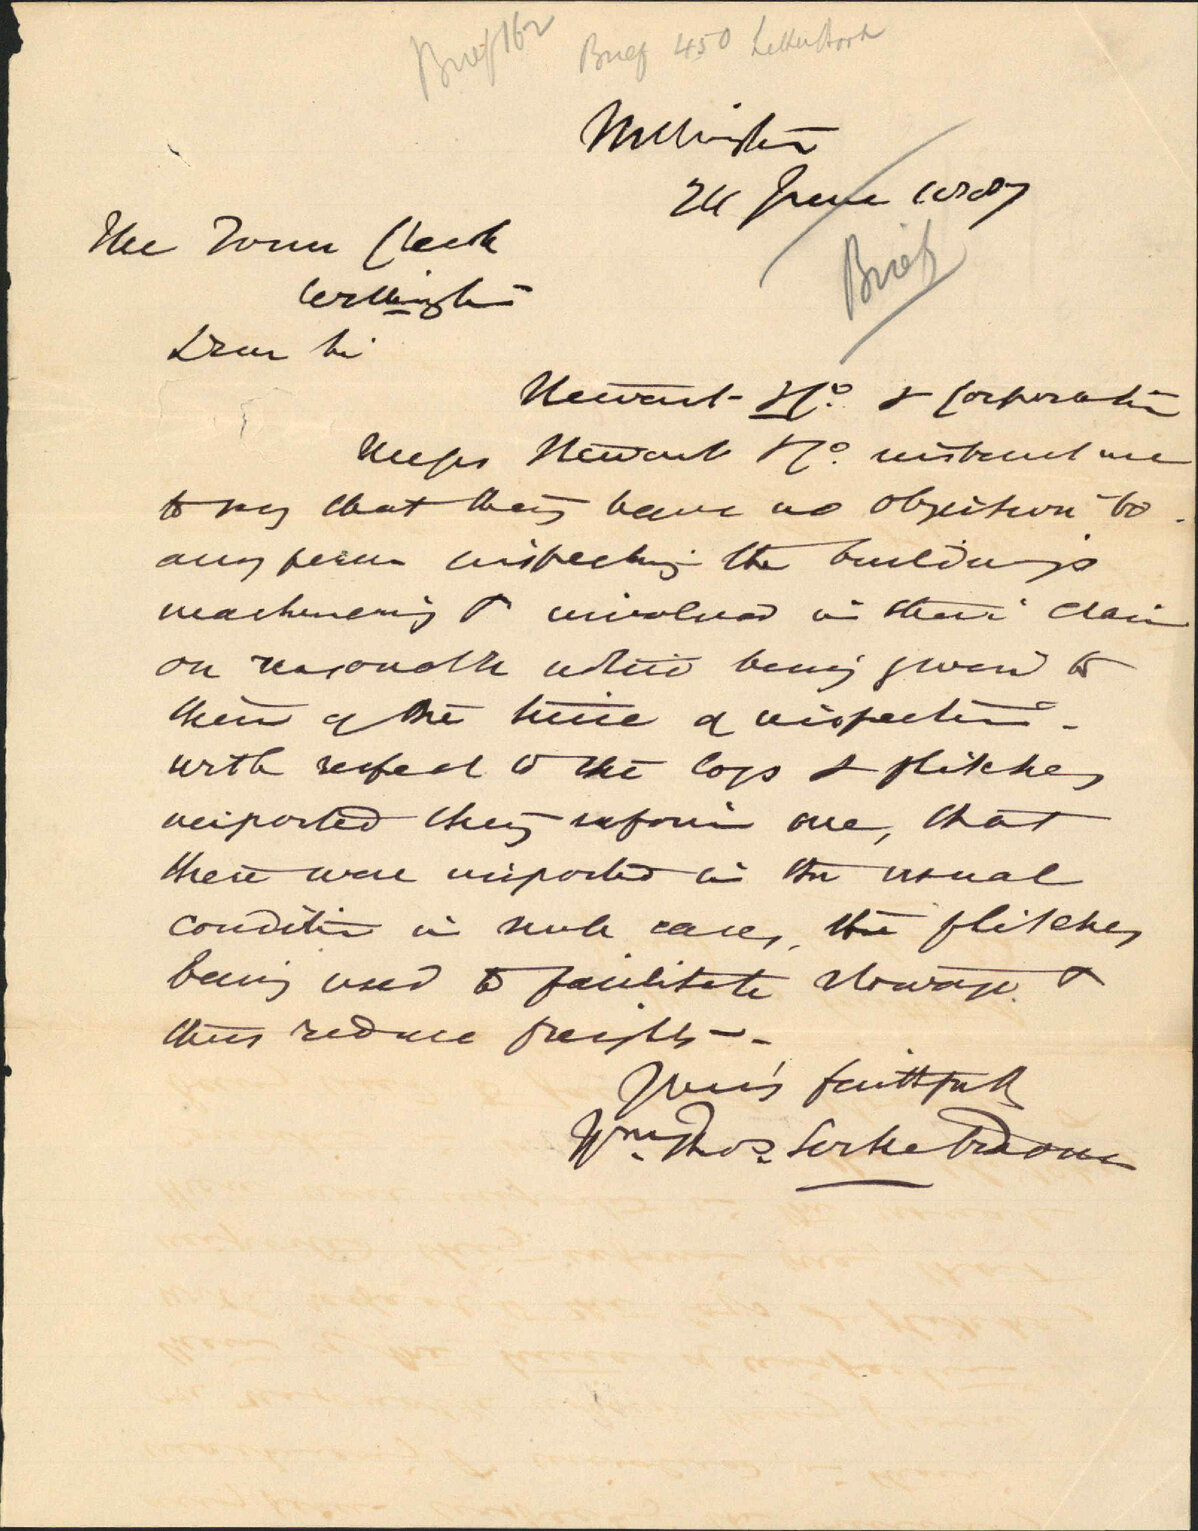 Brief 162
Brief 450 Letterbook
Wellington
24 June 1887
Brief
The Town Clerk
Wellington
Dear Sir
Stewart & Co. & Corporation
Messrs Stewart & Co. instruct me
to say that they have no objection to
any person inspecting the buildings
machinery & involved in their claim
on reasonable notice being given to
them of the time of inspection -
with respect to the logs & flitches
imported they inform me, that
these were imported in the usual
condition in such cases, the flitches
being used to facilitate stowage &
thus reduce freights -
Yours faithfully
Wm. Thos. Locke Travers